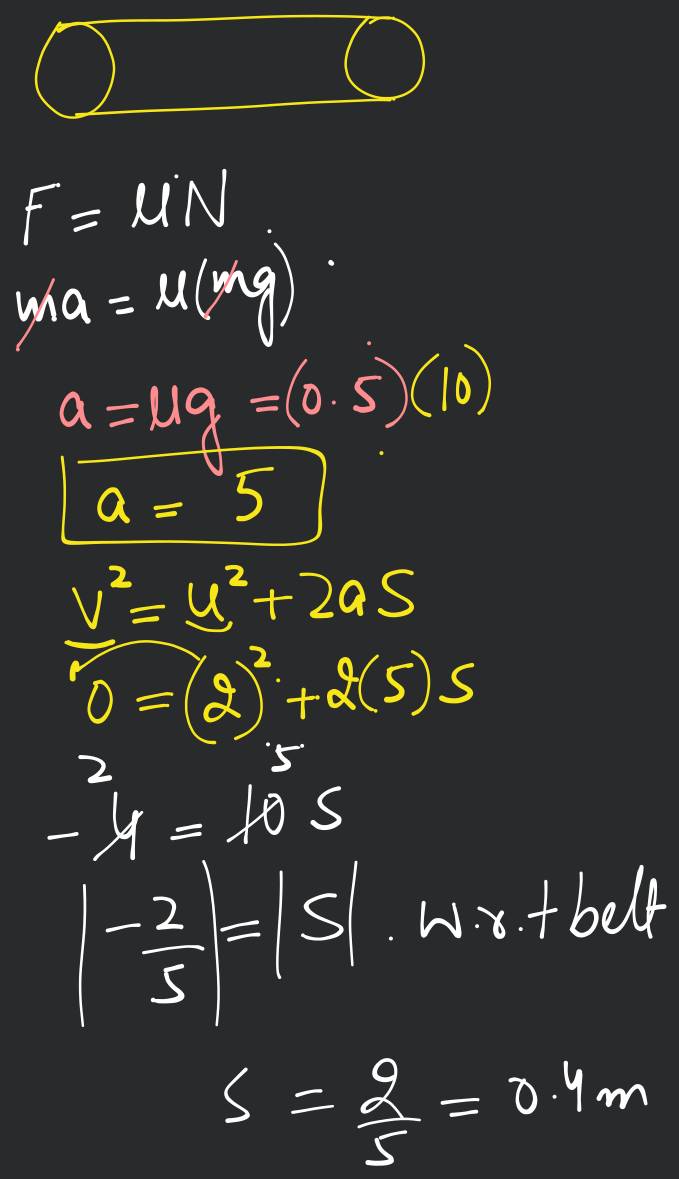 F = μN
ma = μ(mg)
a = μg = (0.5)(10)
a = 5
v² = u² + 2as
0 = (2)² + 2(5)s
2 5
-4 = 10 s
|-2/5| = |s| . w.r.t belt
s = 2/5 = 0.4m